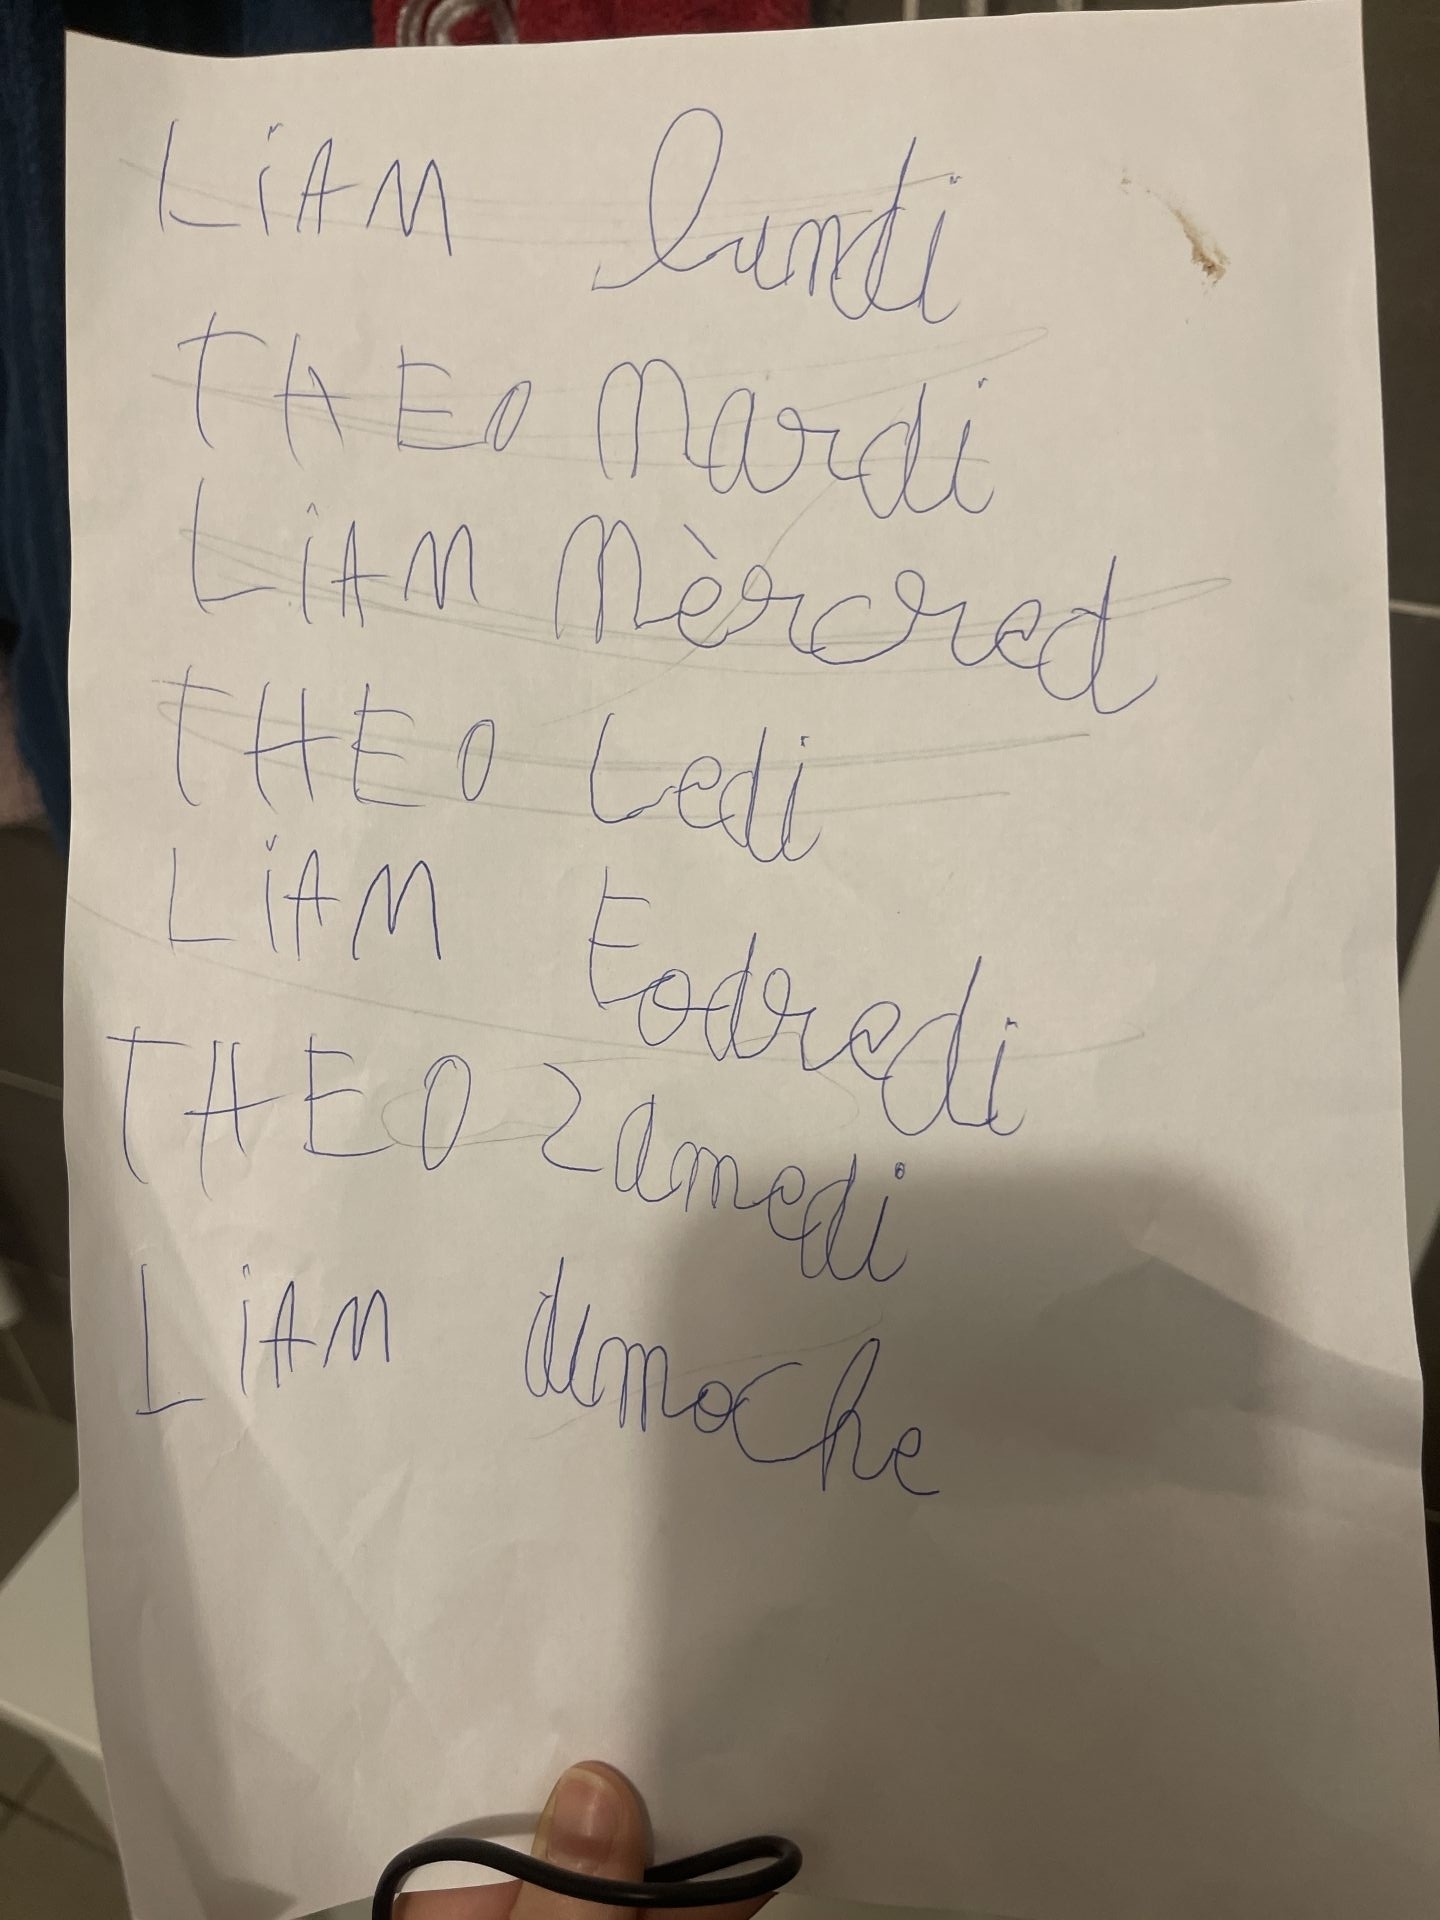 LiAM lundi
THEO Mardi
LiAM Mèrcred
THEO Ledi
LiAM Eodredi
THEO Zamedi
LiAM dimoche